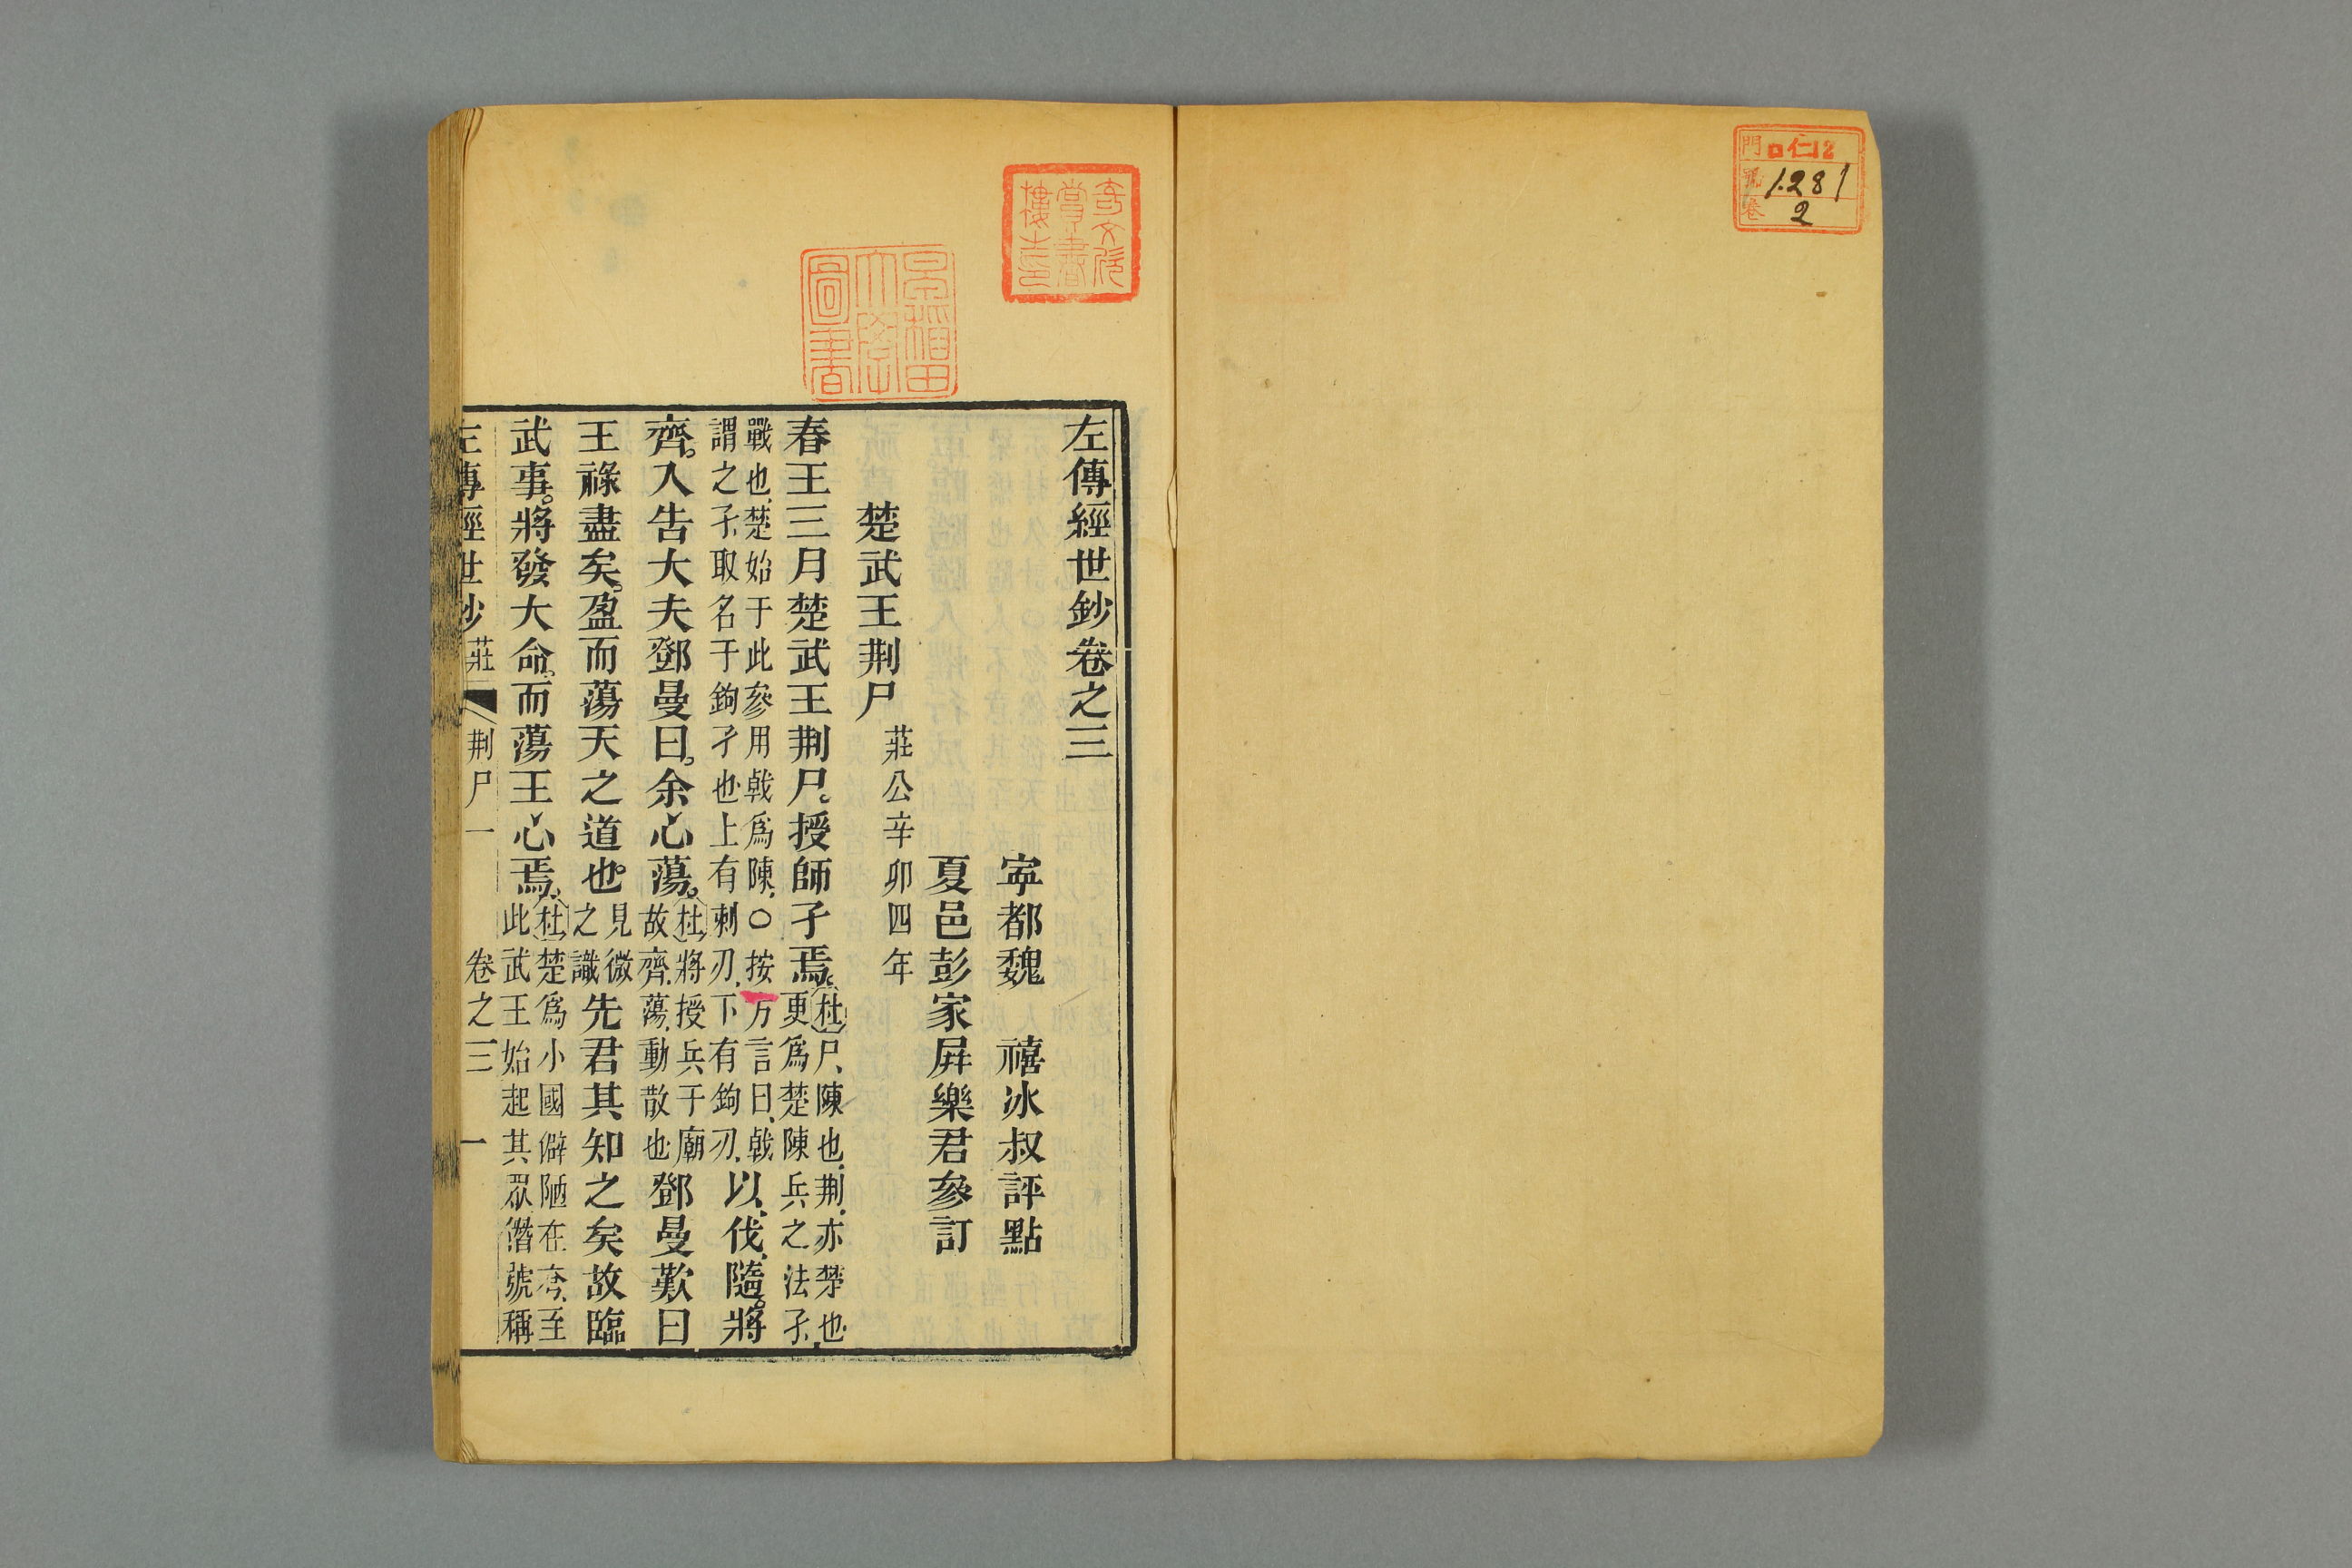 門 仁12
號 1281
卷 2
早稻田大學圖書
左傳經世鈔卷之三
寧都魏 禧冰叔評點
夏邑彭家屏樂君參訂
楚武王荆尸 莊公辛卯四年
春王三月楚武王荆尸。授師孑焉。杜尸、陳也、荆、亦楚也、更爲楚陳兵之法孑、
戰也、楚始于此參用戟爲陳、○按方言曰、戟謂之孑、取名于鉤孑也上有刺刃、下有鉤刃、以伐、隨。將
齊。入告大夫鄧曼曰。余心蕩。杜將授兵于廟故齊、蕩、動散也鄧曼歎曰
王祿盡矣。盈而蕩天之道也。見微之識先君其知之矣故臨
武事。將發大命。而蕩王心焉。杜楚爲小國僻陋在夷、至此武王始起其眾僭號稱
左傳經世鈔 莊 荆尸一 卷之三 一